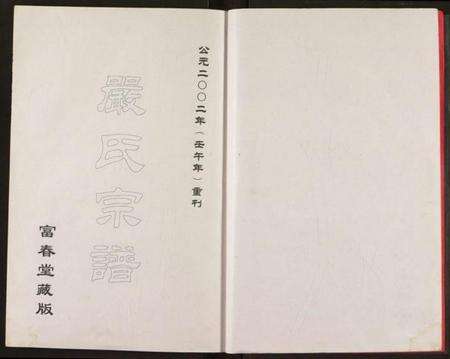 公元二〇〇二年（壬午年）重刊
嚴氏宗譜
富春堂藏版